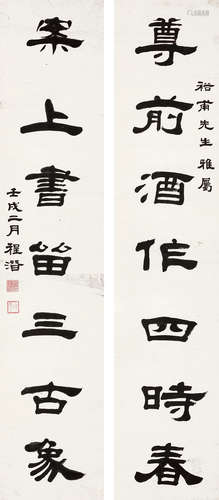 裕甫先生雅屬
尊前酒作四時春
案上書留三古象
壬戌二月程潛